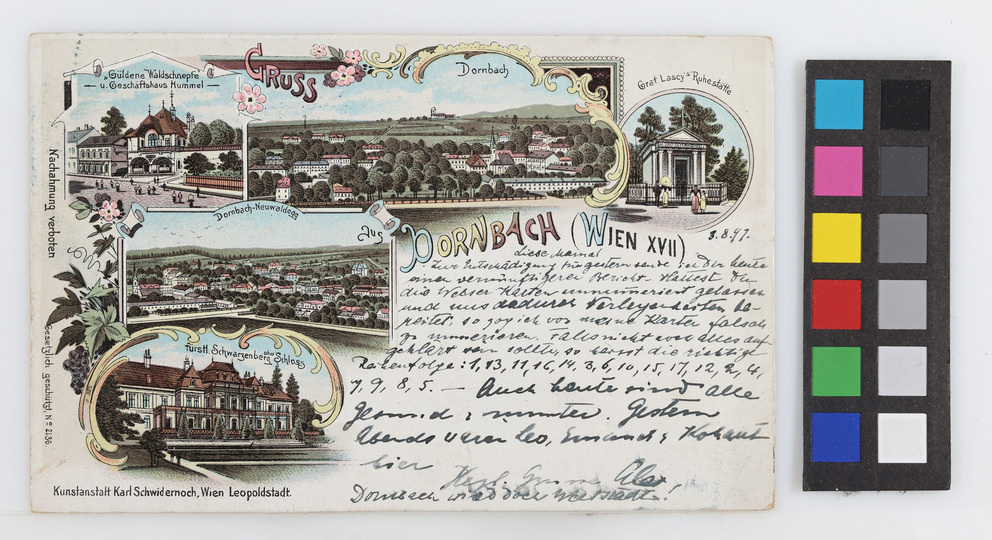 „Güldene Waldschnepfe"
— u. Geschäftshaus Hummel —
GRUSS
Dornbach
Graf Lascy's Ruhestätte
Nachahmung verboten
Dornbach-Neuwaldegg
aus
DORNBACH (WIEN XVII)
3.8.97.
Liebe Mama!
Zur Entschädigung für gestern sende ich Dir heute
einen vernünftigeren Bericht. Hättest Du
die Welser Karten unnummeriert gelassen
und uns dadurch Verlegenheiten be-
reitet, so zog ich vor meine Karten falsch
zu numerieren. Falls nicht von alles auf
geklärt sein sollte, so kennst die richtige
Reihenfolge: 1, 13, 11, 16, 14, 3, 6, 10, 15, 17, 12, 2, 4,
7, 9, 8, 5. — Auch heute sind alle
gesund & munter. Gestern
Abends waren Leo, &
hier
Herzl. Alex
Dornbach
fürstl. Schwarzenberg'sches Schloss
Gesetzlich geschützt, No 2136
Kunstanstalt Karl Schwidernoch, Wien Leopoldstadt.